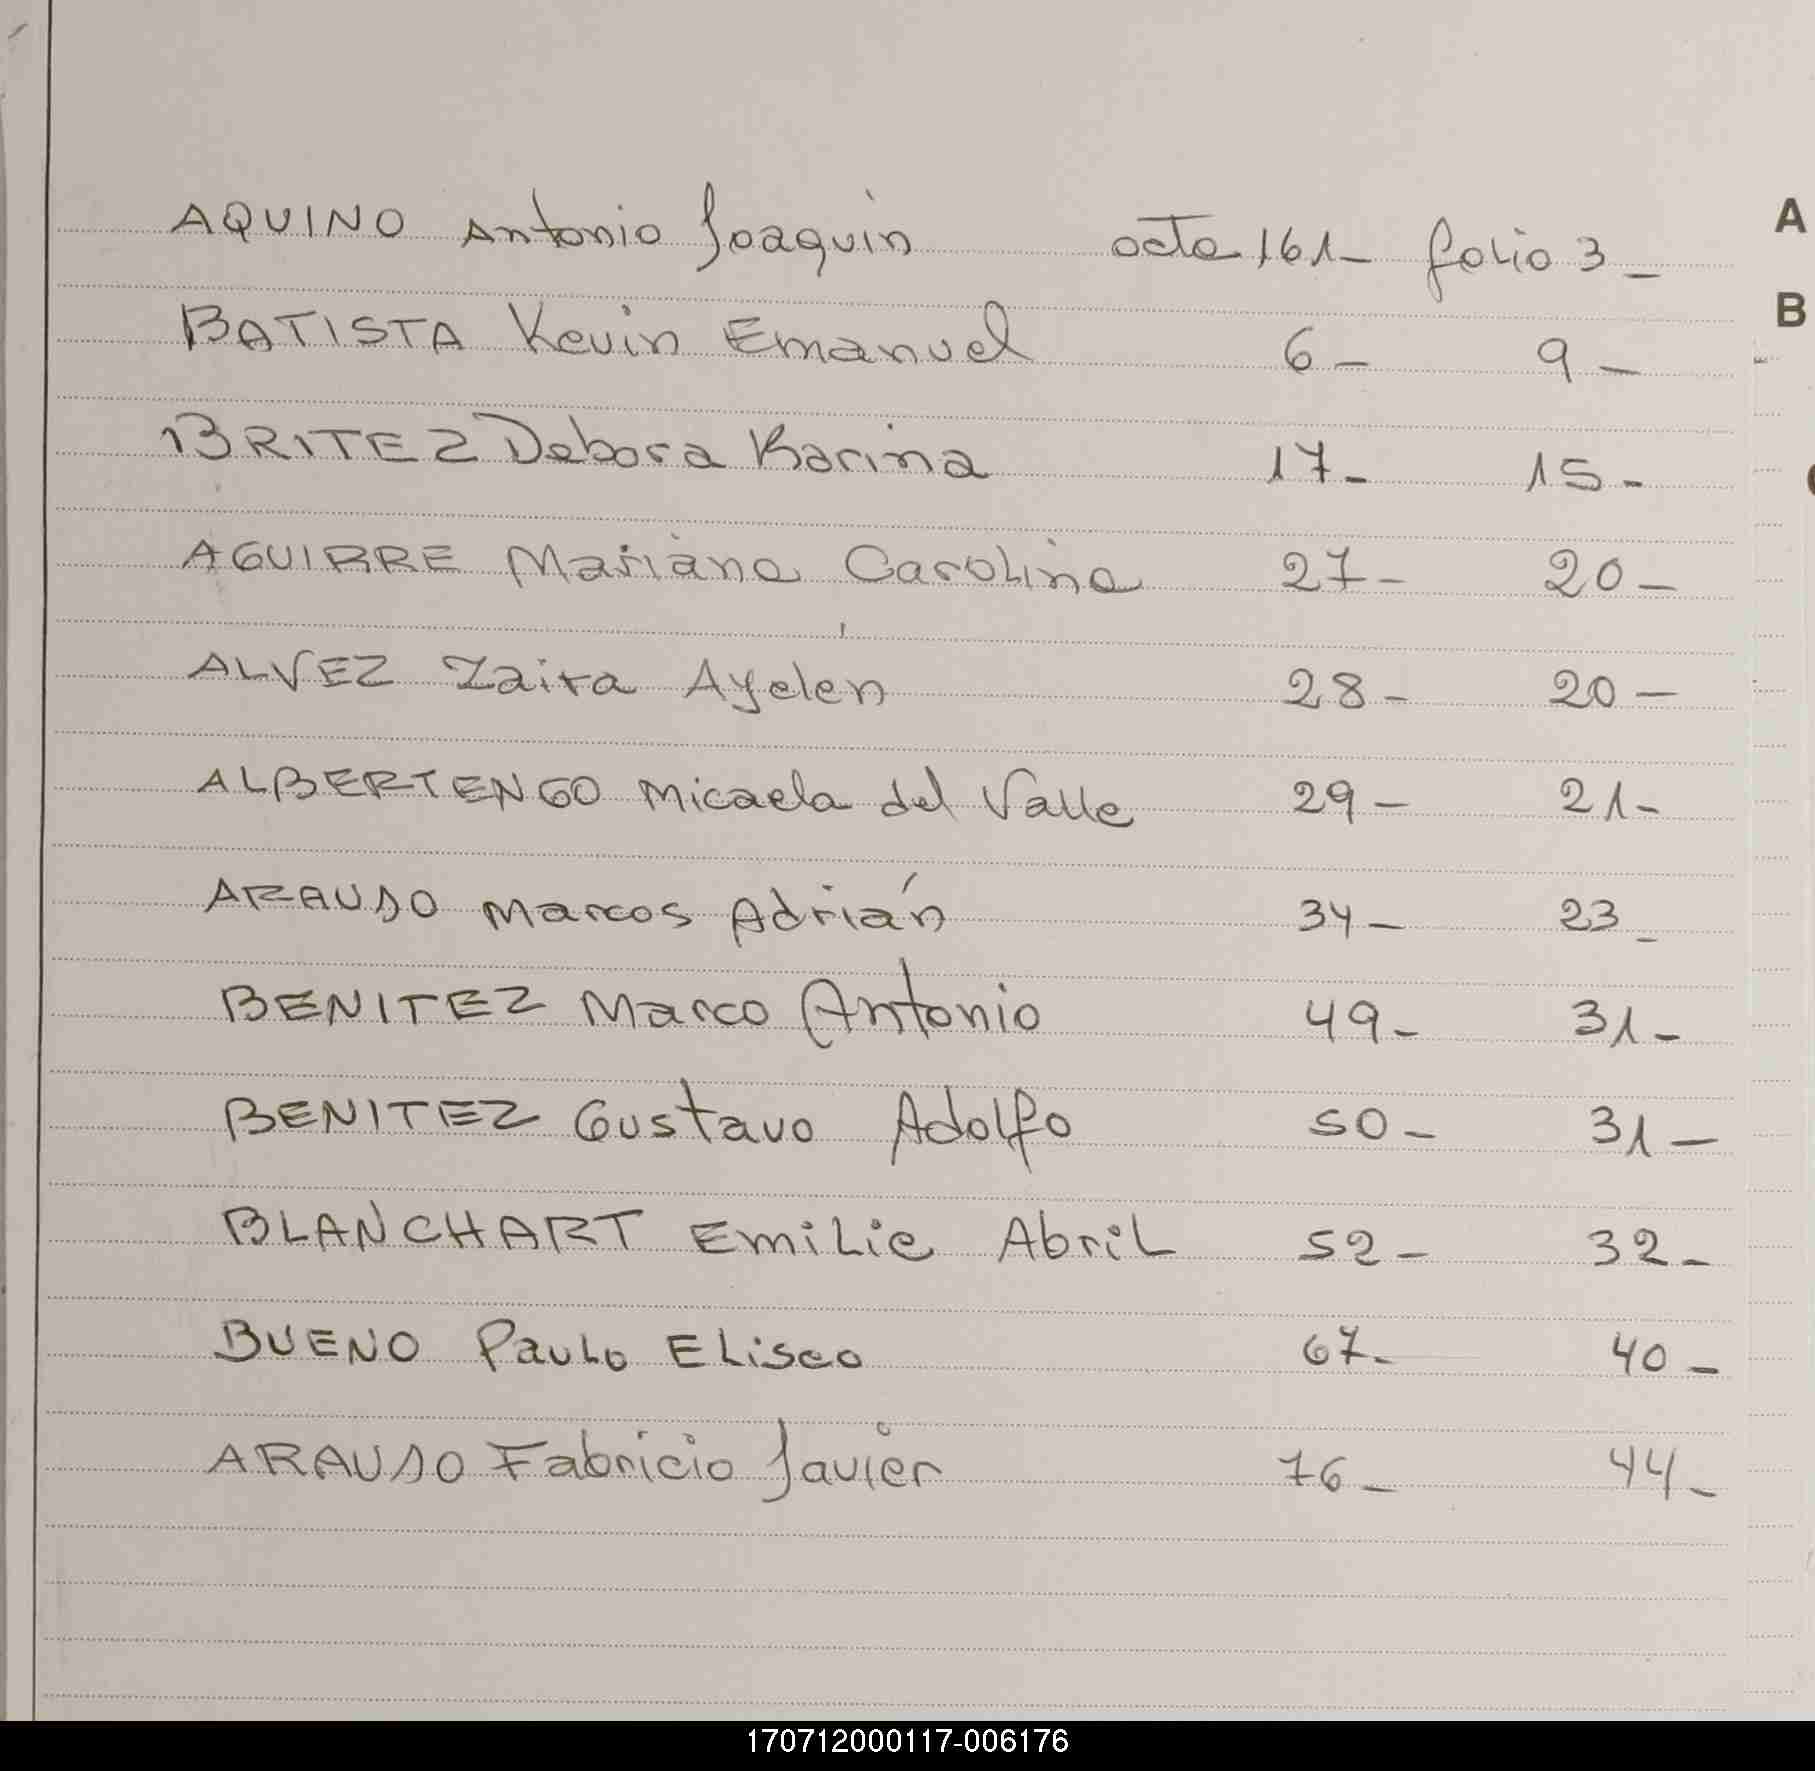 AQUINO Antonio Joaquin acta 161- folio 3-
A
B
BATISTA Kevin Emanuel 6- 9-
BRITEZ Debora Karina 17- 15-
AGUIRRE Mariana Carolina 27- 20-
ALVEZ Zaira Ayelen 28- 20-
ALBERTENGO Micaela del Valle 29- 21-
ARAUJO Marcos Adrián 34- 23-
BENITEZ Marco Antonio 49- 31-
BENITEZ Gustavo Adolfo 50- 31-
BLANCHART Emilie Abril 52- 32-
BUENO Paulo Eliseo 67- 40-
ARAUJO Fabricio Javier 76- 44-
170712000117-006176